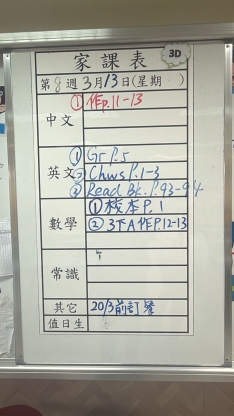 家課表
3D
第8週3月13日(星期 )
中文
①作P.11-13
英文
① Gr P.5
② Chws P.1-3
③ Read Bk. P.93-94
數學
① 校本P.1
② 3下A作P.12-13
常識
其它 20/3前訂餐
值日生